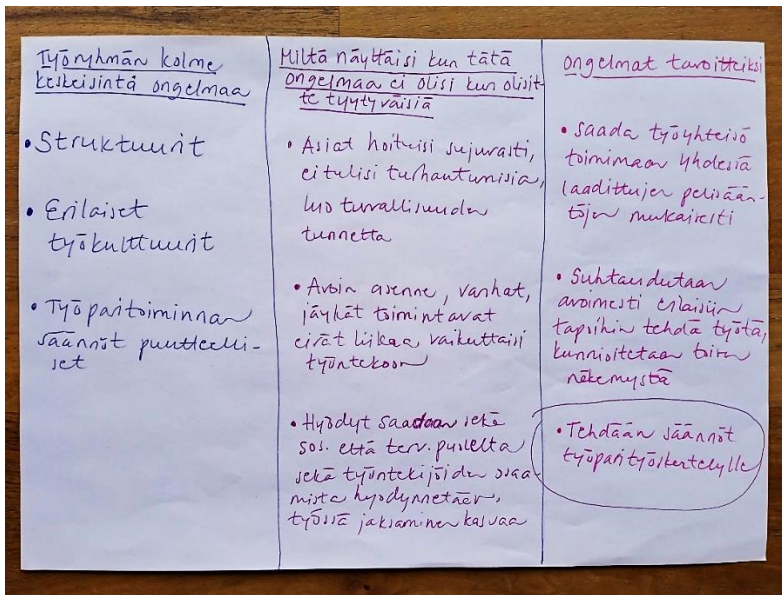 Työryhmän kolme
keskeisintä ongelmaa
• Struktuurit
• Erilaiset
työkulttuurit
• Työparitoiminnan
säännöt puutteelli-
set
Miltä näyttäisi kun tätä
ongelmaa ei olisi kun olisit-
te tyytyväisiä
• Asiat hoituisi sujuvasti,
ei tulisi turhautumisia,
luo turvallisuuden
tunnetta
• Avoin asenne, vanhat,
jäykät toimintavat
eivät liikaa vaikuttaisi
työntekoon
• Hyödyt saadaan sekä
sos. että terv. puolelta
sekä työntekijöiden osaa-
mista hyödynnetään,
työssä jaksaminen kasvaa
Ongelmat tavoitteiksi
• Saada työyhteisö
toimimaan yhdessä
laadittujen pelisään-
töjen mukaisesti
• Suhtaudutaan
avoimesti erilaisiin
tapoihin tehdä työtä,
kunnioitetaan toisen
näkemystä
• Tehdään säännöt
työparityöskentelylle